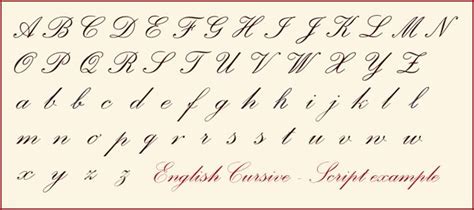 A B C D E F G H I J K L M N
O P Q R S T U V W X Y Z
a b c d e f g h i j k l
m n o p q r s t u v w
x y z z English Cursive - Script example